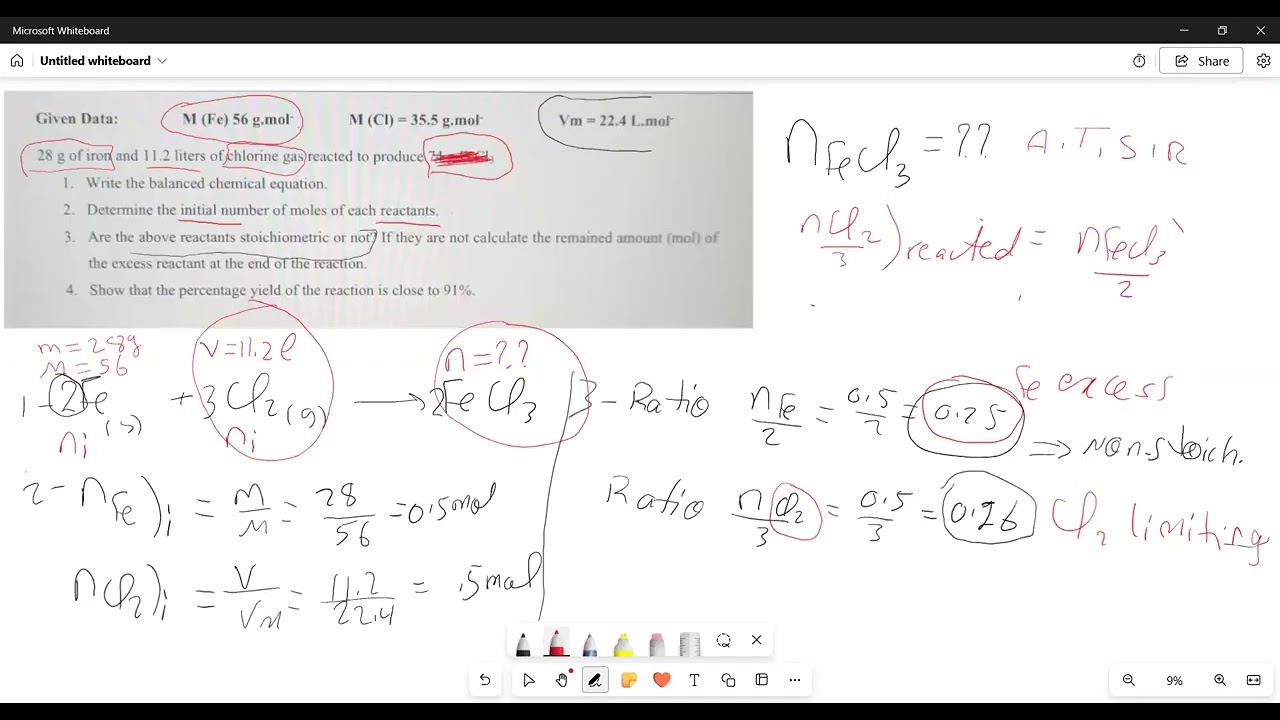 Microsoft Whiteboard
Untitled whiteboard
Share
Given Data: M (Fe) 56 g.mol- M (Cl) = 35.5 g.mol- Vm = 22.4 L.mol-
28 g of iron and 11.2 liters of chlorine gas reacted to produce
1. Write the balanced chemical equation.
2. Determine the initial number of moles of each reactants.
3. Are the above reactants stoichiometric or not? If they are not calculate the remained amount (mol) of
the excess reactant at the end of the reaction.
4. Show that the percentage yield of the reaction is close to 91%.
nFeCl3 = ?? A.T.S.R
nCl2/3 ) reacted = nFeCl3/2
m=28g
M=56
V=11.2l
n=??
1- 2Fe(s) + 3Cl2(g) → 2FeCl3
ni ni
2- nFe)i = m/M = 28/56 = 0.5mol
nCl2)i = V/Vm = 11.2/22.4 = .5mol
3- Ratio nFe/2 = 0.5/2 = 0.25 Fe excess
⇒ non-stoich.
Ratio nCl2/3 = 0.5/3 = 0.16 Cl2 limiting
9%